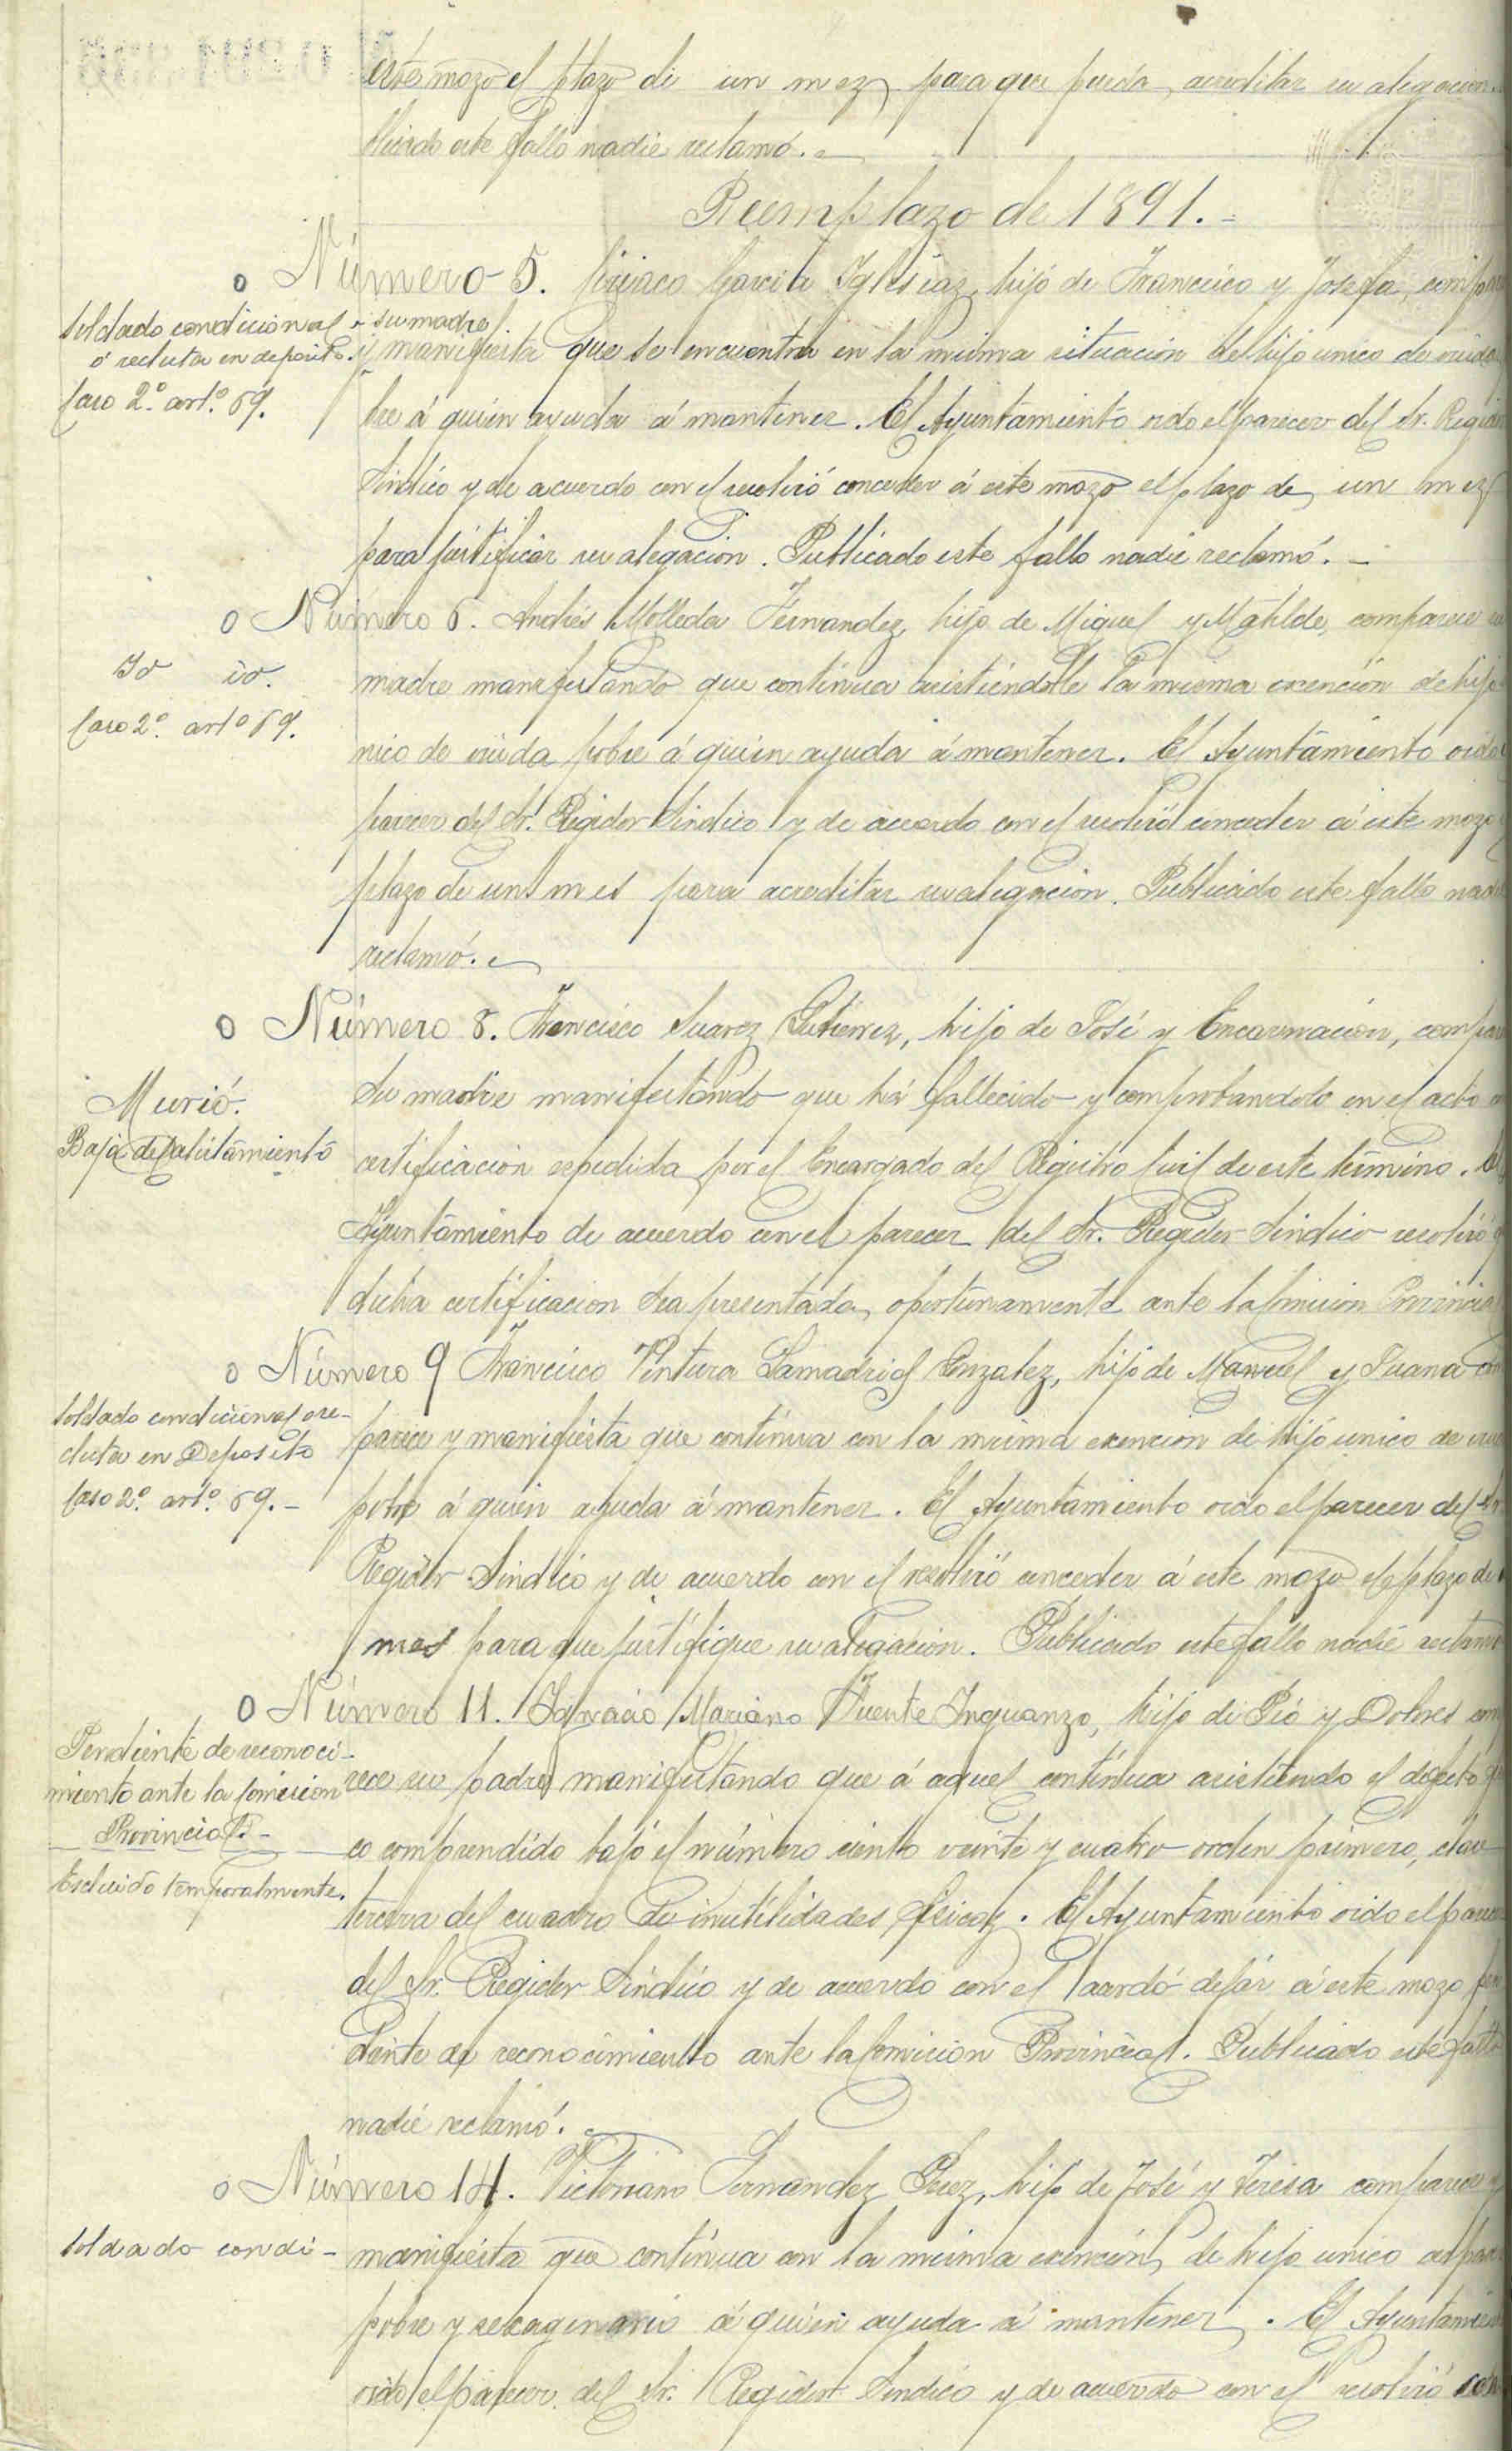 este mozo el plazo de un mez para que pueda acreditar su alegacion.
blicado este fallo nadie reclamó.=
Reemplazo de 1891.=
o Número 5. Ciriaco Garcia Iglesiaz, hijo de Francisco y Josefa, compare
soldado condicional
ó recluta en deposito.
Caso 2º. art.º 69.
su madre
y manifiesta que se encuentra en la misma situación del hijo unico de viuda
bre á quien ayuda á mantener. El Ayuntamiento oido el parecer del Sr. Regidor
Sindico y de acuerdo con el resolvió conceder á este mozo el plazo de un mez
para justificar su alegacion. Publicado este fallo nadie reclamó.=
o Número 6. Andrés Molleda Fernandez, hijo de Miguel y Matilde, comparece su
Id id.
Caso 2º. artº 69.
madre manifestando que continua asistiéndole la misma excención de hijo
nico de viuda pobre á quien ayuda á mantener. El Ayuntamiento oido
parecer del Sr. Regidor Sindico y de acuerdo con el resolvió conceder á este mozo
plazo de un mes para acreditar su alegacion. Publicado este fallo nadie
reclamó.=
o Número 8. Francisco Suarez Gutierrez, hijo de José y Encarnación, compare
Murió.
Baja del alistamiento
Su madre manifestando que há fallecido y comprobandolo en el acto
certificación espedida por el Encargado del Registro Civil de este término. El
Ayuntamiento de acuerdo con el parecer del Sr. Regidor Sindico resolvió
dicha certificacion sea presentada oportunamente ante la Comision Provincial
o Número 9 Francisco Ventura Samadrid Gonzalez, hijo de Manuel y Juana com
soldado condicional o re-
cluta en Deposito
Caso 2º. artº. 69.-
parece y manifiesta que continua con la misma exencion de hijo unico de viuda
pobre á quien ayuda á mantener. El Ayuntamiento oido el parecer del Sr.
Regidor Sindico y de acuerdo con el resolvió conceder á este mozo el plazo de
mes para que justifique su alegación. Publicado este fallo nadie reclamó
o Número 11. Ignacio Mariano Fuente Inguanzo, hijo de Pió y Dolores com
Pendiente de reconoci-
miento ante la Comision
Provincial.-
Escluido temporalmente.
rece su padre manifestando que á aquel continua asistiendo el defecto
co comprendido bajo el número ciento veinte y cuatro orden primero, clase
tercera del cuadro de inutilidades fisicaz. El Ayuntamiento oido el parecer
del Sr. Regidor Sindico y de acuerdo con el acordó dejár á este mozo pen
diente de reconocimiento ante la Comision Provincial. Publicado este fallo
nadie reclamó.=
o Número 14. Victoriano Fernandez Perez, hijo de José y Teresa comparece y
soldado condi-
manifiesta que continua con la misma exención de hijo unico de padre
pobre y sexagenario á quien ayuda á mantener. El Ayuntamiento
oido el parecer del Sr. Regidor Sindico y de acuerdo con el resolvió con